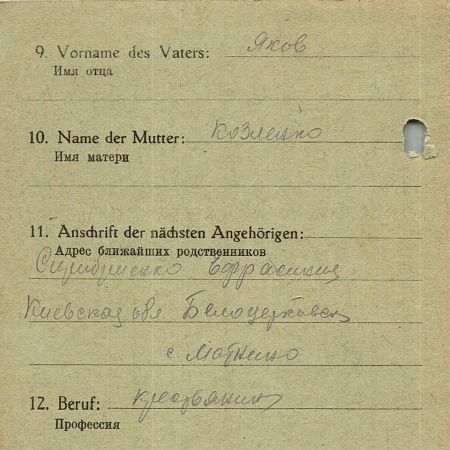 9. Vorname des Vaters: Яков
Имя отца
10. Name der Mutter: Козленко
Имя матери
11. Anschrift der nächsten Angehörigen:
Адрес ближайших родственников
Ефросиния
Киевская обл Белоцерковск
с.
12. Beruf: крестьянин
Профессия